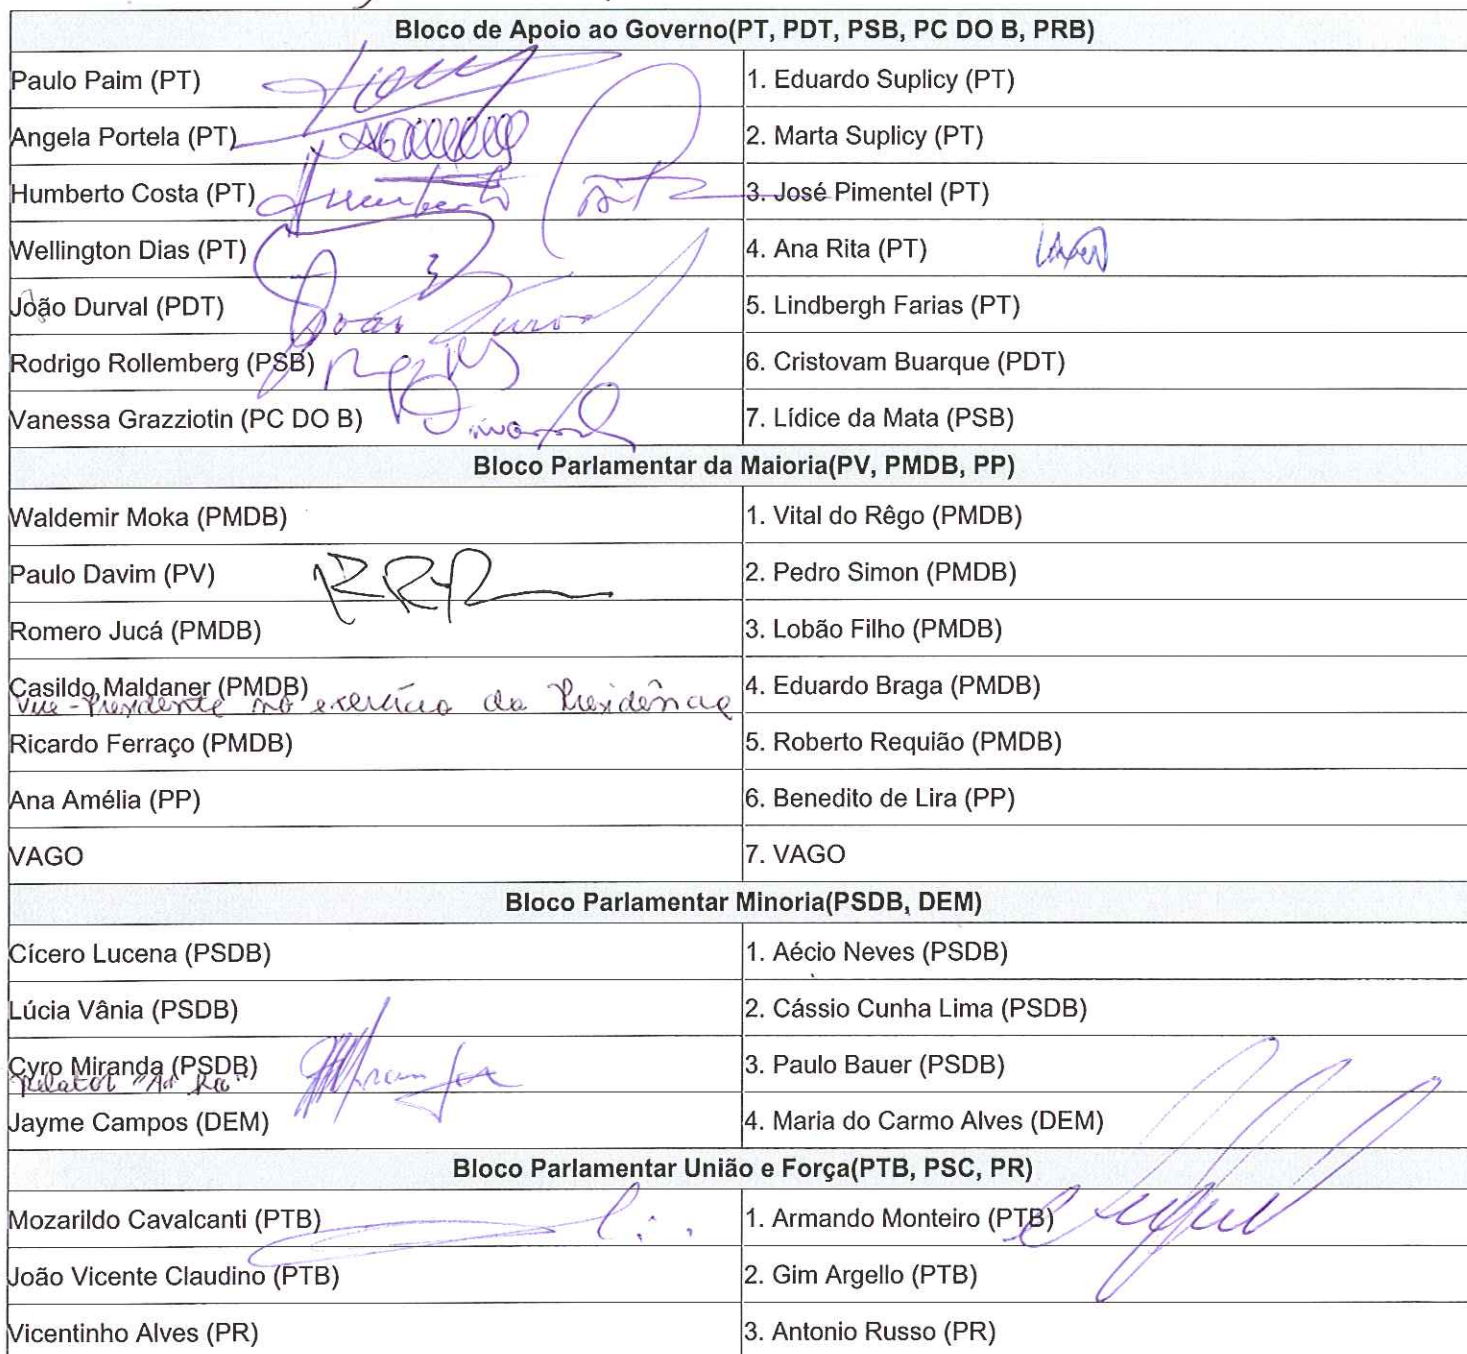 Bloco de Apoio ao Governo(PT, PDT, PSB, PC DO B, PRB)
Paulo Paim (PT) 1. Eduardo Suplicy (PT)
Angela Portela (PT) 2. Marta Suplicy (PT)
Humberto Costa (PT) Humberto Costa 3. José Pimentel (PT)
Wellington Dias (PT) 4. Ana Rita (PT)
João Durval (PDT) João Durval 5. Lindbergh Farias (PT)
Rodrigo Rollemberg (PSB) 6. Cristovam Buarque (PDT)
Vanessa Grazziotin (PC DO B) 7. Lídice da Mata (PSB)
Bloco Parlamentar da Maioria(PV, PMDB, PP)
Waldemir Moka (PMDB) 1. Vital do Rêgo (PMDB)
Paulo Davim (PV) 2. Pedro Simon (PMDB)
Romero Jucá (PMDB) 3. Lobão Filho (PMDB)
Casildo Maldaner (PMDB) 4. Eduardo Braga (PMDB)
Vice-Presidente no exercício da Presidência
Ricardo Ferraço (PMDB) 5. Roberto Requião (PMDB)
Ana Amélia (PP) 6. Benedito de Lira (PP)
VAGO 7. VAGO
Bloco Parlamentar Minoria(PSDB, DEM)
Cícero Lucena (PSDB) 1. Aécio Neves (PSDB)
Lúcia Vânia (PSDB) 2. Cássio Cunha Lima (PSDB)
Cyro Miranda (PSDB) 3. Paulo Bauer (PSDB)
Relator "Ad hoc"
Jayme Campos (DEM) 4. Maria do Carmo Alves (DEM)
Bloco Parlamentar União e Força(PTB, PSC, PR)
Mozarildo Cavalcanti (PTB) 1. Armando Monteiro (PTB)
João Vicente Claudino (PTB) 2. Gim Argello (PTB)
Vicentinho Alves (PR) 3. Antonio Russo (PR)